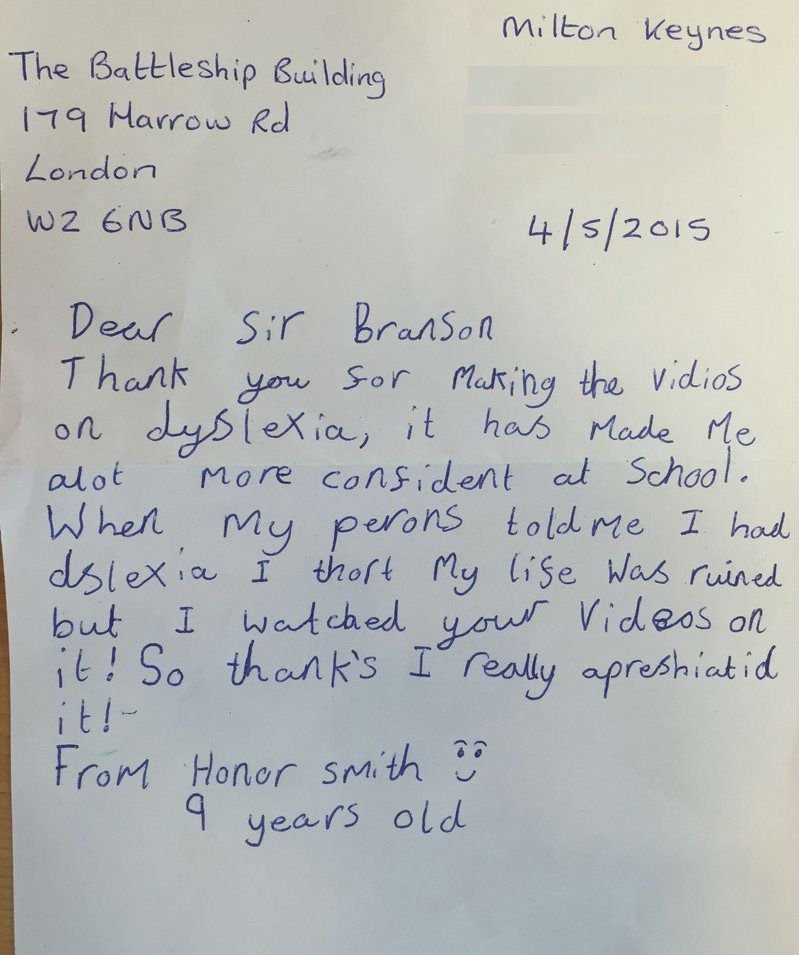 Milton Keynes
The Battleship Building
179 Harrow Rd
London
W2 6NB
4/5/2015
Dear Sir Branson
Thank you for making the vidios
on dyslexia, it has made me
alot more confident at School.
When my perons told me I had
dslexia I thort my life was ruined
but I watched your Videos on
it! So thank's I really apreshiatid
it!~
From Honor smith
9 years old